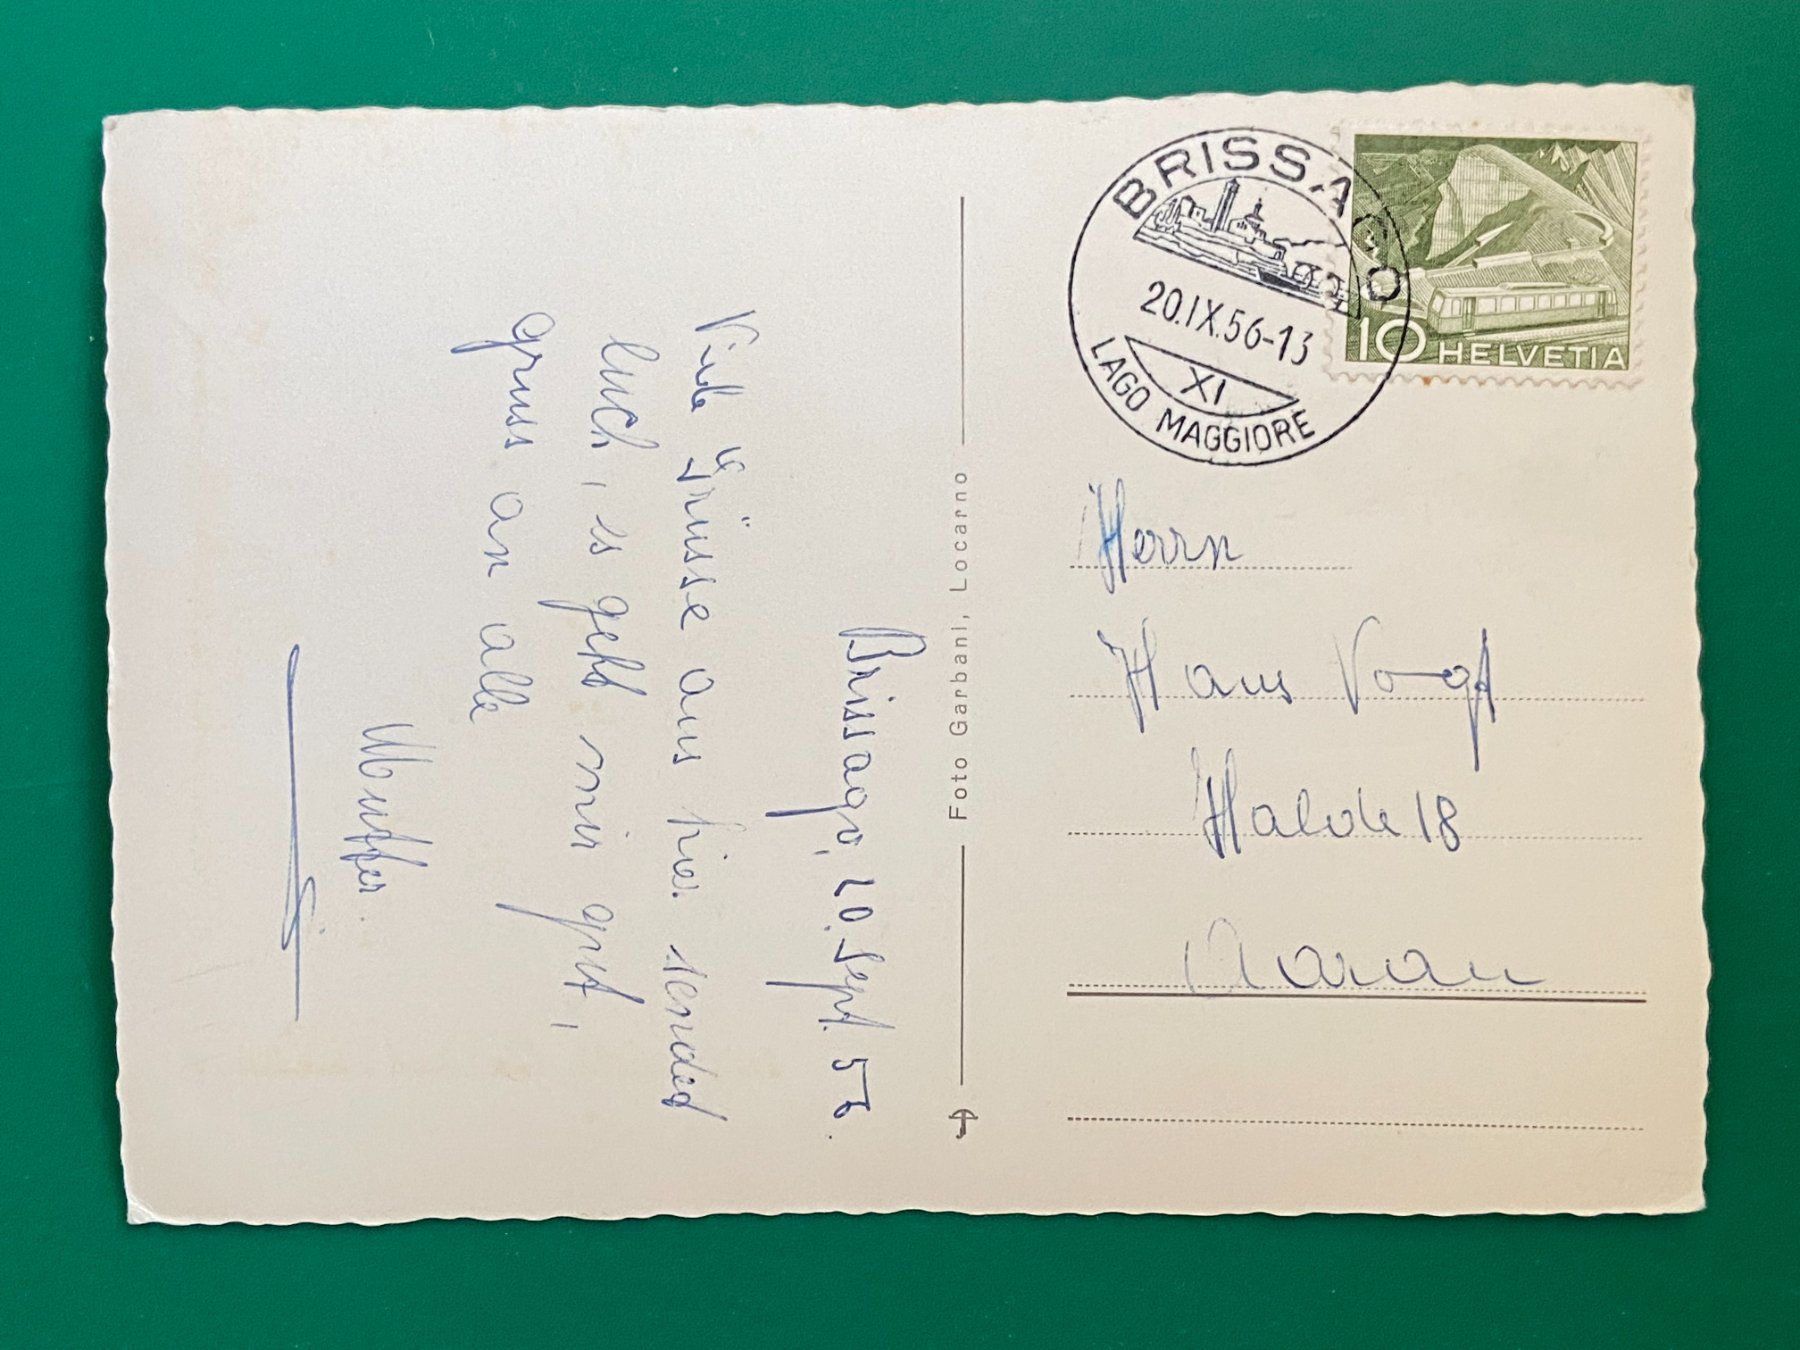 Brissago, 20. Sept. 56.
Viele Grüsse aus hier sended
Euch, es geht mir gut,
gruss an alle
Mutter.
Foto Garbani, Locarno
BRISSAGO
20.IX.56-13
XI
LAGO MAGGIORE
10 HELVETIA
Herrn
Hans Vogt
Halde 18
Aarau